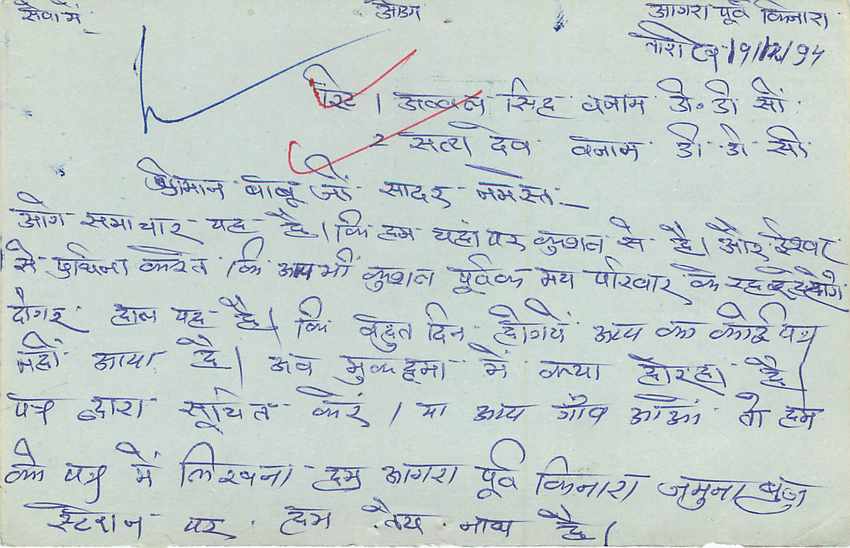 सेवा में, ओउम आगरा पूर्व किनारा
9/12/94
रिट 1 अव्वल सिह बनाम डी॰ डी सी
2 सत्य देव बनाम डी डी सी
श्रीमान बाबू जी सादर नमस्त
आग समाचार यह है। कि हम यहां पर कुशल से है। और ईश्वर
से करेत कि आप भी कुशल पूर्वक मय परिवार के होगे
दीगर हाल यह है। कि बहुत दिन होगये आप का कोई पत्र
नही आया है। अब मुकद्दमा में क्या होरहा है।
पत्र द्वारा सूचित करें। या आप गाँव आओ तो हम
को पत्र में लिखना हम आगरा पूर्व किनारा जमुना ब्रज
स्टेशन पर हम है।